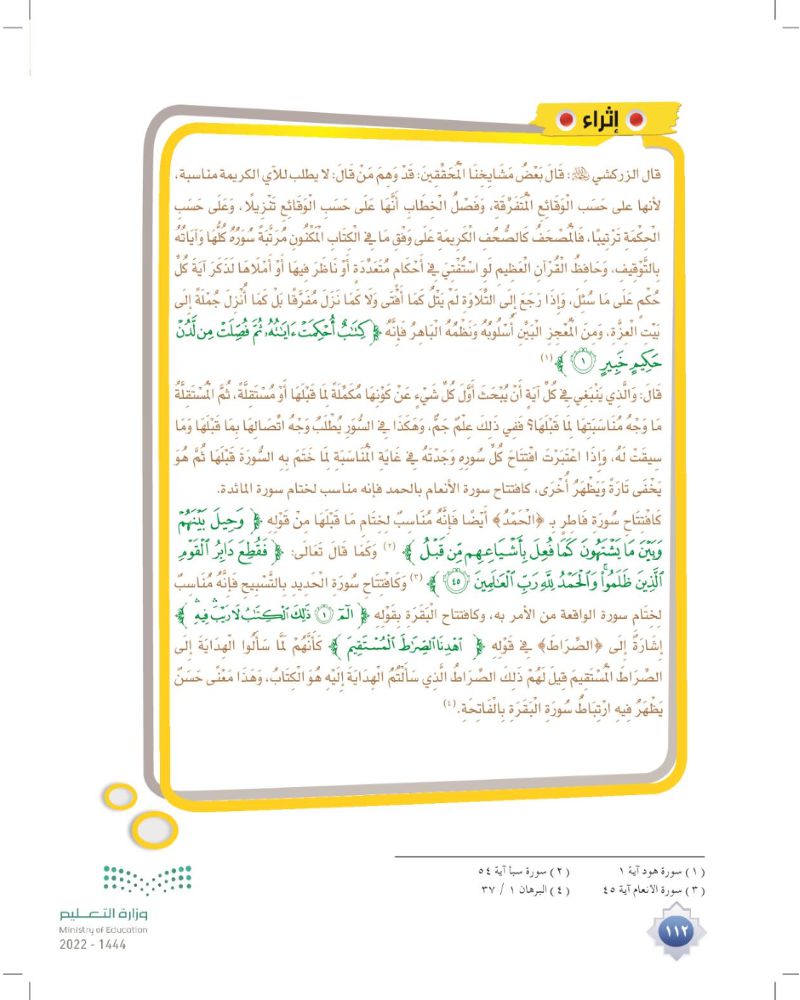 إثراء
قال الزركشي ﵀: قَالَ بَعْضُ مَشَايِخِنَا الْمُحَقِّقِينَ: قَدْ وَهِمَ مَنْ قَالَ: لا يطلب للآي الكريمة مناسبة،
لأنها على حَسَب الْوَقَائِعِ الْمُتَفَرِّقَةِ، وَفَصْلُ الْخِطَابِ أَنَّهَا عَلَى حَسَبِ الْوَقَائِعِ تَنْزِيلًا، وَعَلَى حَسَبِ
الْحِكْمَةِ تَرْتِيبًا، فَالْمُصْحَفُ كَالصُّحُفِ الْكَرِيمَةِ عَلَى وَفْقِ مَا فِي الْكِتَابِ الْمَكْنُونِ مُرَتَّبَةٌ سُوَرُهُ كُلُّهَا وَآيَاتُهُ
بِالتَّوْقِيفِ، وَحَافِظُ الْقُرْآنِ الْعَظِيمِ لَوِ اسْتُفْتِيَ فِي أَحْكَامٍ مُتَعَدِّدَةٍ أَوْ نَاظَرَ فِيهَا أَوْ أَمْلَاهَا لَذَكَرَ آيَةَ كُلِّ
حُكْمٍ عَلَى مَا سُئِلَ، وَإِذَا رَجَعَ إِلَى التِّلَاوَةِ لَمْ يَتْلُ كَمَا أَفْتَى وَلَا كَمَا نَزَلَ مُفَرَّقًا بَلْ كَمَا أُنْزِلَ جُمْلَةً إِلَى
بَيْتِ الْعِزَّةِ، وَمِنَ الْمُعْجِزِ الْبَيِّنِ أُسْلُوبُهُ وَنَظْمُهُ الْبَاهِرُ فَإِنَّهُ ﴿كِتَٰبٌ أُحْكِمَتْ ءَايَٰتُهُۥ ثُمَّ فُصِّلَتْ مِن لَّدُنْ
حَكِيمٍ خَبِيرٍ ١﴾ (١)
قَالَ: وَالَّذِي يَنْبَغِي فِي كُلِّ آيَةٍ أَنْ يُبْحَثَ أَوَّلَ كُلِّ شَيْءٍ عَنْ كَوْنِهَا مُكَمِّلَةً لِمَا قَبْلَهَا أَوْ مُسْتَقِلَّةً، ثُمَّ الْمُسْتَقِلَّةُ
مَا وَجْهُ مُنَاسَبَتِهَا لِمَا قَبْلَهَا؟ فَفِي ذَلِكَ عِلْمٌ جَمٌّ، وَهَكَذَا فِي السُّوَرِ يُطْلَبُ وَجْهُ اتِّصَالِهَا بِمَا قَبْلَهَا وَمَا
سِيقَتْ لَهُ، وَإِذَا اعْتَبَرْتَ افْتِتَاحَ كُلِّ سُورِهِ وَجَدْتَهُ فِي غَايَةِ الْمُنَاسَبَةِ لِمَا خَتَمَ بِهِ السُّورَةَ قَبْلَهَا ثُمَّ هُوَ
يَخْفَى تَارَةً وَيَظْهَرُ أُخْرَى، كافتتاح سورة الأنعام بالحمد فإنه مناسب لختام سورة المائدة.
كَافْتِتَاحِ سُورَةِ فَاطِرٍ بـ ﴿الْحَمْدُ﴾ أَيْضًا فَإِنَّهُ مُنَاسِبٌ لِخِتَامِ مَا قَبْلَهَا مِنْ قَوْلِهِ ﴿وَحِيلَ بَيْنَهُمْ
وَبَيْنَ مَا يَشْتَهُونَ كَمَا فُعِلَ بِأَشْيَاعِهِم مِّن قَبْلُ﴾ (٢) وَكَمَا قَالَ تَعَالَى: ﴿فَقُطِعَ دَابِرُ الْقَوْمِ
الَّذِينَ ظَلَمُوا۟ وَالْحَمْدُ لِلَّهِ رَبِّ الْعَالَمِينَ ٤٥﴾ (٣) وَكَافْتِتَاحِ سُورَةِ الْحَدِيدِ بِالتَّسْبِيحِ فَإِنَّهُ مُنَاسِبٌ
لِخِتَامِ سورة الواقعة من الأمر به، وكافتتاح الْبَقَرَةِ بِقَوْلِهِ ﴿الٓمٓ ١ ذَٰلِكَ الْكِتَٰبُ لَا رَيْبَ ۛ فِيهِ ۛ﴾
إشَارَةً إِلَى ﴿الصِّرَاطَ﴾ فِي قَوْلِهِ ﴿اهْدِنَا الصِّرَٰطَ الْمُسْتَقِيمَ﴾ كَأَنَّهُمْ لَمَّا سَأَلُوا الْهِدَايَةَ إِلَى
الصِّرَاطَ الْمُسْتَقِيمَ قِيلَ لَهُمْ ذَلِكَ الصِّرَاطُ الَّذِي سَأَلْتُمُ الْهِدَايَةَ إِلَيْهِ هُوَ الْكِتَابُ، وَهَذَا مَعْنًى حَسَنٌ
يَظْهَرُ فِيهِ ارْتِبَاطُ سُورَةِ الْبَقَرَةِ بِالْفَاتِحَةِ. (٤)
(١) سورة هود آية ١ (٢) سورة سبأ آية ٥٤
(٣) سورة الانعام آية ٤٥ (٤) البرهان ١ / ٣٧
١١٢
وزارة التعليم
Ministry of Education
2022 - 1444